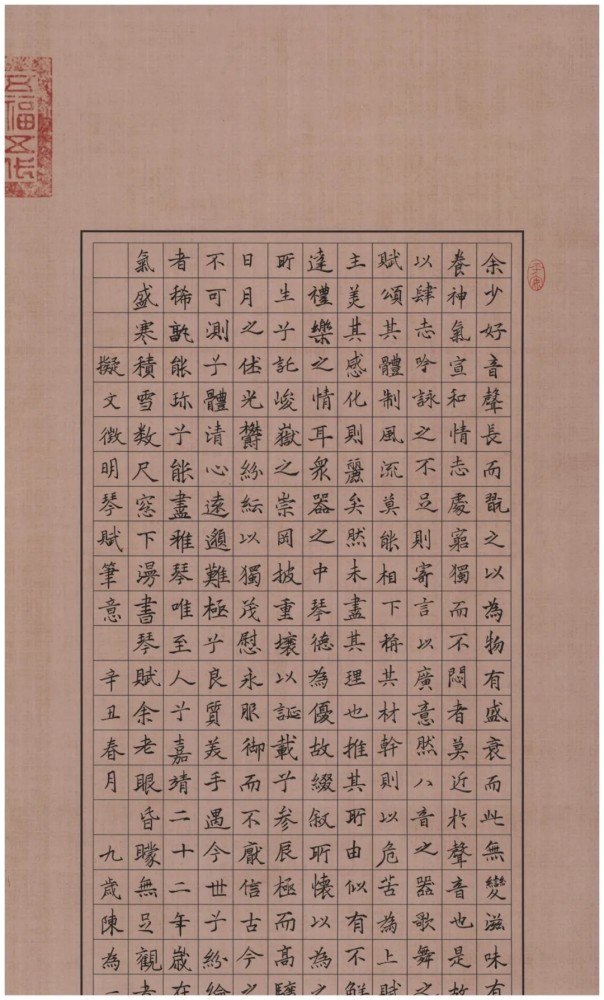 余少好音聲長而翫之以為物有盛衰而此無變滋味有
養神氣宣和情志處窮獨而不悶者莫近於聲音也是故
以肆志吟詠之不足則寄言以廣意然八音之器歌舞之
賦頌其體制風流莫能相下稱其材幹則以危苦為上賦
主美其感化則麗矣然未盡其理也推其所由似有不解
達禮樂之情耳衆器之中琴德為優故綴叙所懷以為之
所生兮託峻嶽之崇岡披重壤以誕載兮參辰極而高驤
日月之休光欝紛紜以獨茂慰永服御而不厭信古今之
不可測兮體清心遠邈難極兮良質美手遇今世兮紛綸
者稀孰能珍兮能盡雅琴唯至人兮嘉靖二十二年歲在
氣盛寒積雪数尺窓下漫書琴賦余老眼昏矇無足觀者
擬文徵明琴賦筆意 辛丑春月 九歲陳為一
五福五代